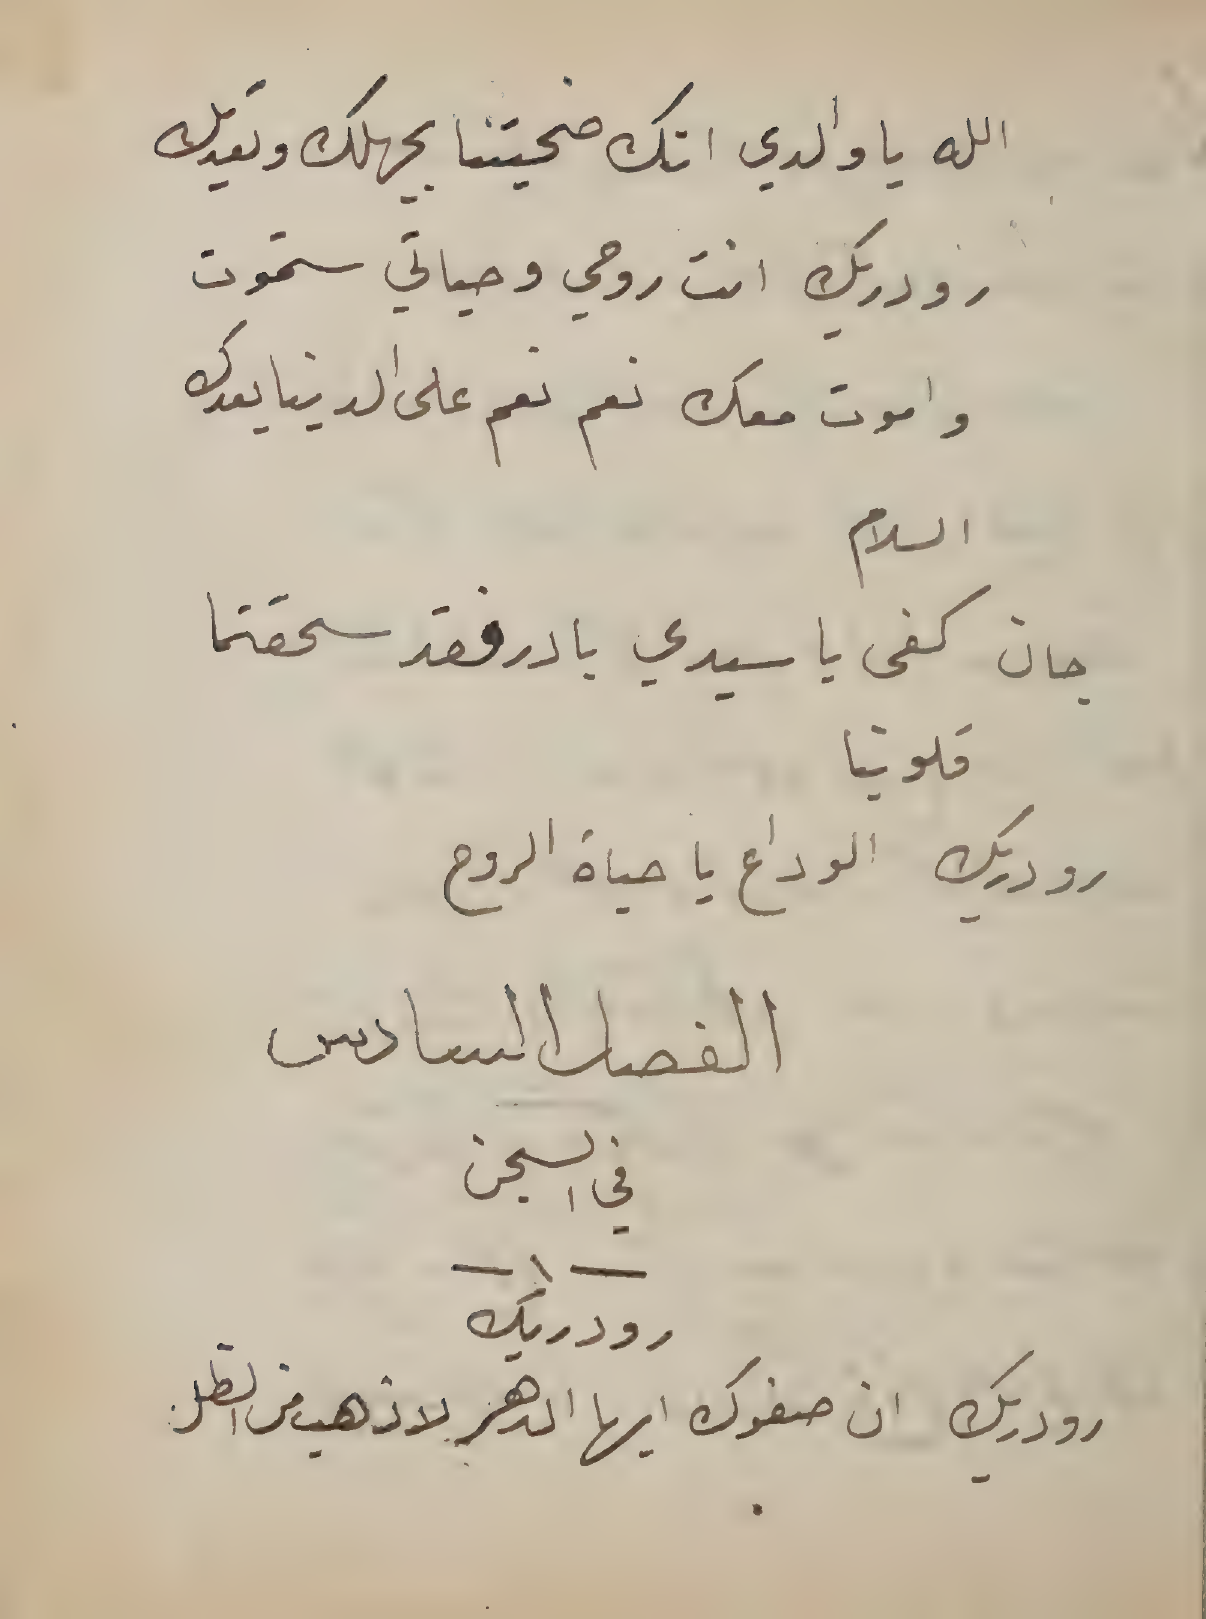 الله يا والدي انك ضحيتنا بجهلك وتقيدك
رودريك انت روحي وحياتي ستموت
واموت معك نعم نعم على الدنيا بعدك
السلام
جان كفى يا سيدي يا در فقد سحقتما
قلوبنا
رودريك الوداع يا حياة الروح
الفصل السادس
في السجن
— ١ —
رودريك
رودريك ان صفوك ايها الدهر لا ذهب من الظل